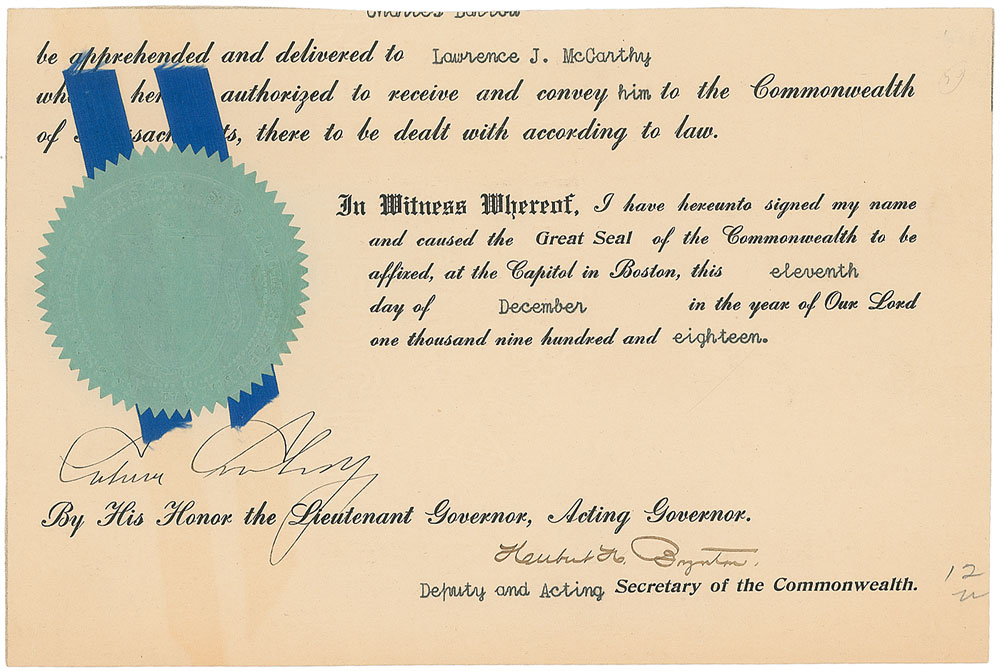 Charles
be apprehended and delivered to Lawrence J. McCarthy
authorized to receive and convey him to the Commonwealth
of Massachusetts, there to be dealt with according to law.
In Witness Whereof, I have hereunto signed my name
and caused the Great Seal of the Commonwealth to be
affixed, at the Capitol in Boston, this eleventh
day of December in the year of Our Lord
one thousand nine hundred and eighteen.
Calvin Coolidge
By His Honor the Lieutenant Governor, Acting Governor.
Herbert H. Boynton.
Deputy and Acting Secretary of the Commonwealth.
12